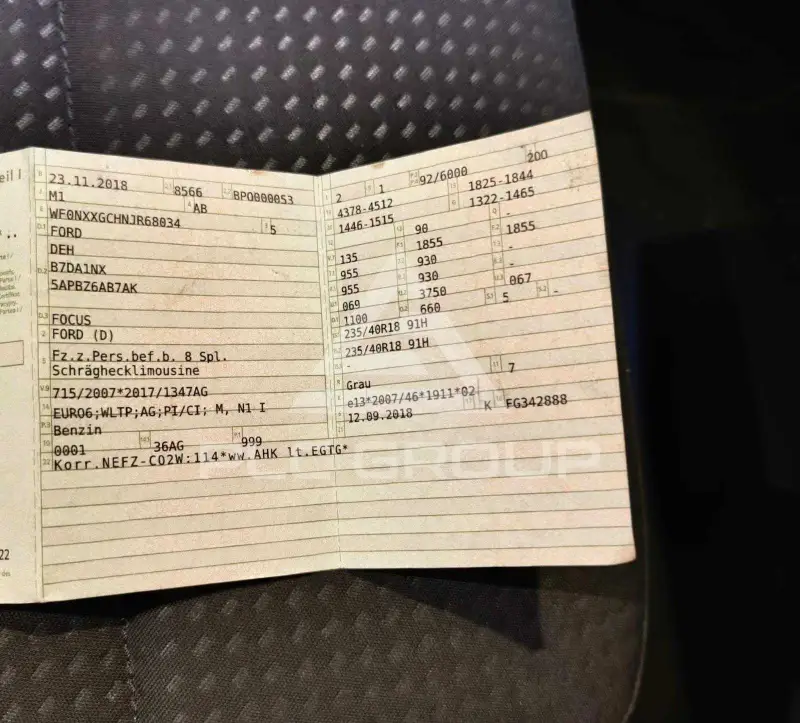 eil I
23.11.2018 8566 BPO000053
M1 AB
WF0NXXGCHNJR68034 5
FORD
DEH
B7DA1NX
5APBZ6AB7AK
FOCUS
FORD (D)
Fz.z.Pers.bef.b. 8 Spl.
Schräghecklimousine
715/2007*2017/1347AG
EURO6;WLTP;AG;PI/CI; M, N1 I
Benzin
0001 36AG 999
Korr.NEFZ-CO2W:114*ww.AHK lt.EGTG*
2 1 92/6000 200
4378-4512 1825-1844
1446-1515 1322-1465
90 -
135 1855 1855
955 930 -
955 930 -
069 3750 067
1100 660 5 -
235/40R18 91H
235/40R18 91H
-
Grau 7
e13*2007/46*1911*02
12.09.2018 K FG342888
22
GROUP